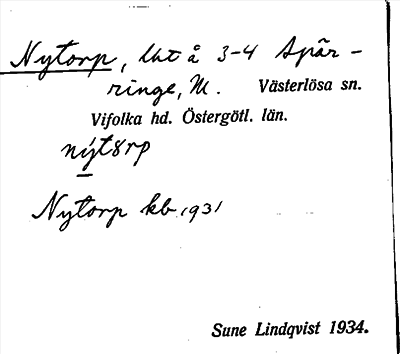 Nytorp, lht å 3-4 Spår-
ringe, M. Västerlösa sn.
Vifolka hd. Östergötl. län.
nýtɷrp
Nytorp kb. 1931
Sune Lindqvist 1934.